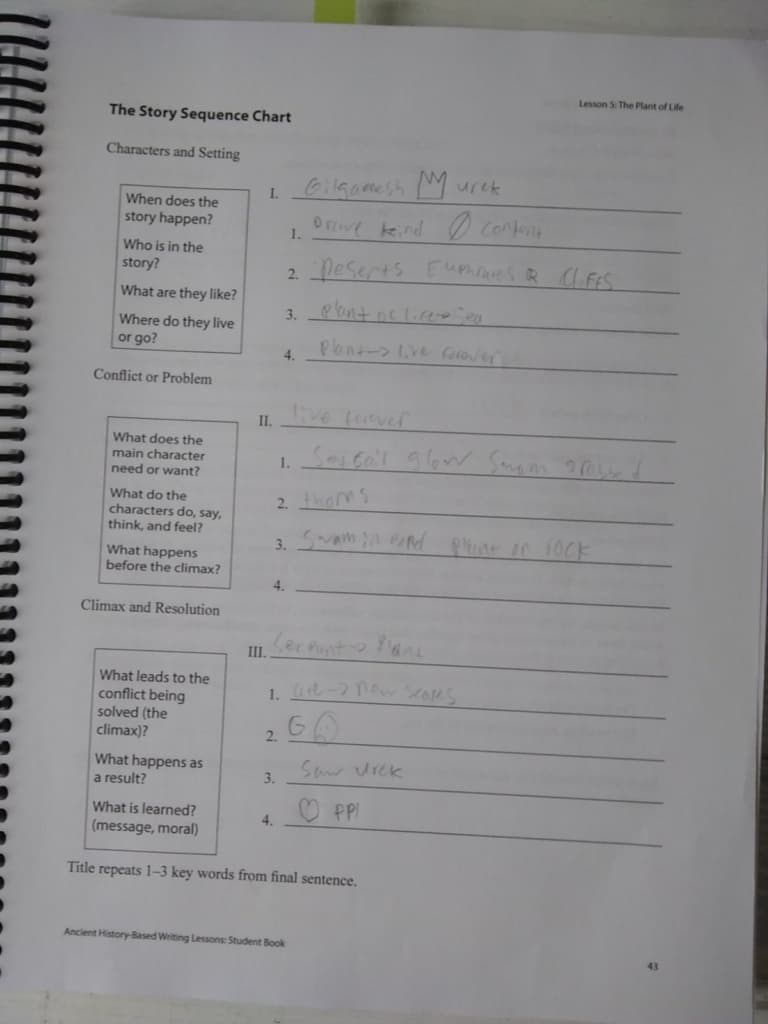 Lesson 5: The Plant of Life
The Story Sequence Chart
Characters and Setting
When does the
story happen?
Who is in the
story?
What are they like?
Where do they live
or go?
I. Gilgamesh urek
1. kind content
2. Deserts Euphrates & Cliffs
3. plant of life → sea
4. Plant → live forever
Conflict or Problem
What does the
main character
need or want?
What do the
characters do, say,
think, and feel?
What happens
before the climax?
II. live forever
1. glow swam
2. thorns
3. swam plant on rock
4.
Climax and Resolution
What leads to the
conflict being
solved (the
climax)?
What happens as
a result?
What is learned?
(message, moral)
III. Serpint → Plant
1. → new scales
2. G
3. Saw Urek
4. ♡ ppl
Title repeats 1–3 key words from final sentence.
Ancient History-Based Writing Lessons: Student Book
43